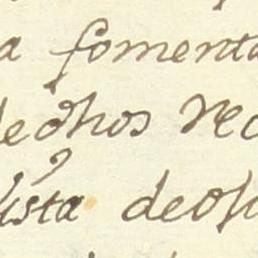 a fomenta
dechos rec
vista dech